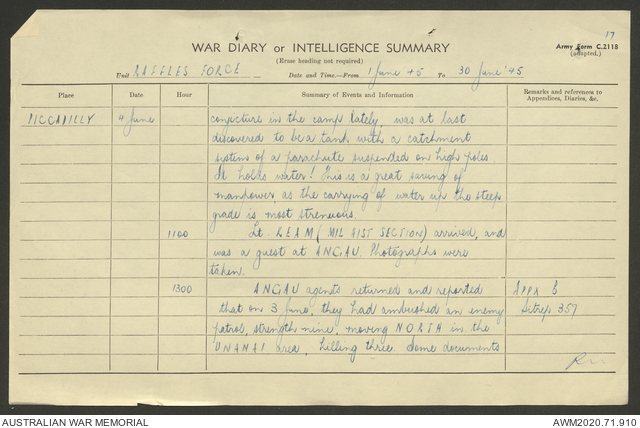 17
WAR DIARY or INTELLIGENCE SUMMARY
(Erase heading not required)
Army Form C.2118
(adapted.)
Unit RAFFLES FORCE Date and Time.—From 1 June 45 To 30 June '45
Place Date Hour Summary of Events and Information Remarks and references to Appendices, Diaries, &c.
PICCADILLY 4 June conjecture in the camp lately, was at last
discovered to be a tank with a catchment
system of a parachute suspended on high poles.
It holds water! This is a great saving of
manpower, as the carrying of water up the steep
grade is most strenuous.
1100 Lt. (MIL HIST SECTION) arrived, and
was a guest at ANGAU. Photographs were
taken.
1300 ANGAU agents returned and reported Appx B
that on 3 June, they had ambushed an enemy Sitrep 357
patrol, strength nine, moving NORTH in the
area, killing three. Some documents
AUSTRALIAN WAR MEMORIAL
AWM2020.71.910